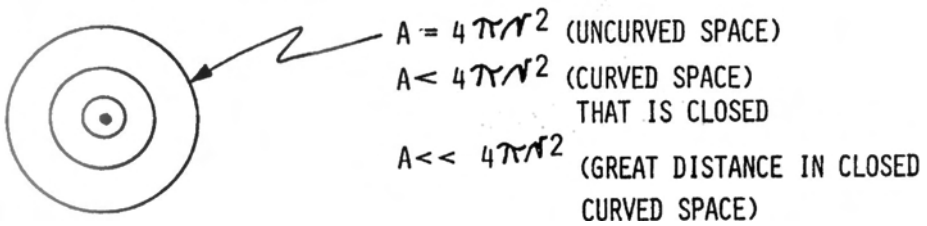 A = 4πr² (UNCURVED SPACE)
A< 4πr² (CURVED SPACE)
THAT IS CLOSED
A<< 4πr² (GREAT DISTANCE IN CLOSED
CURVED SPACE)